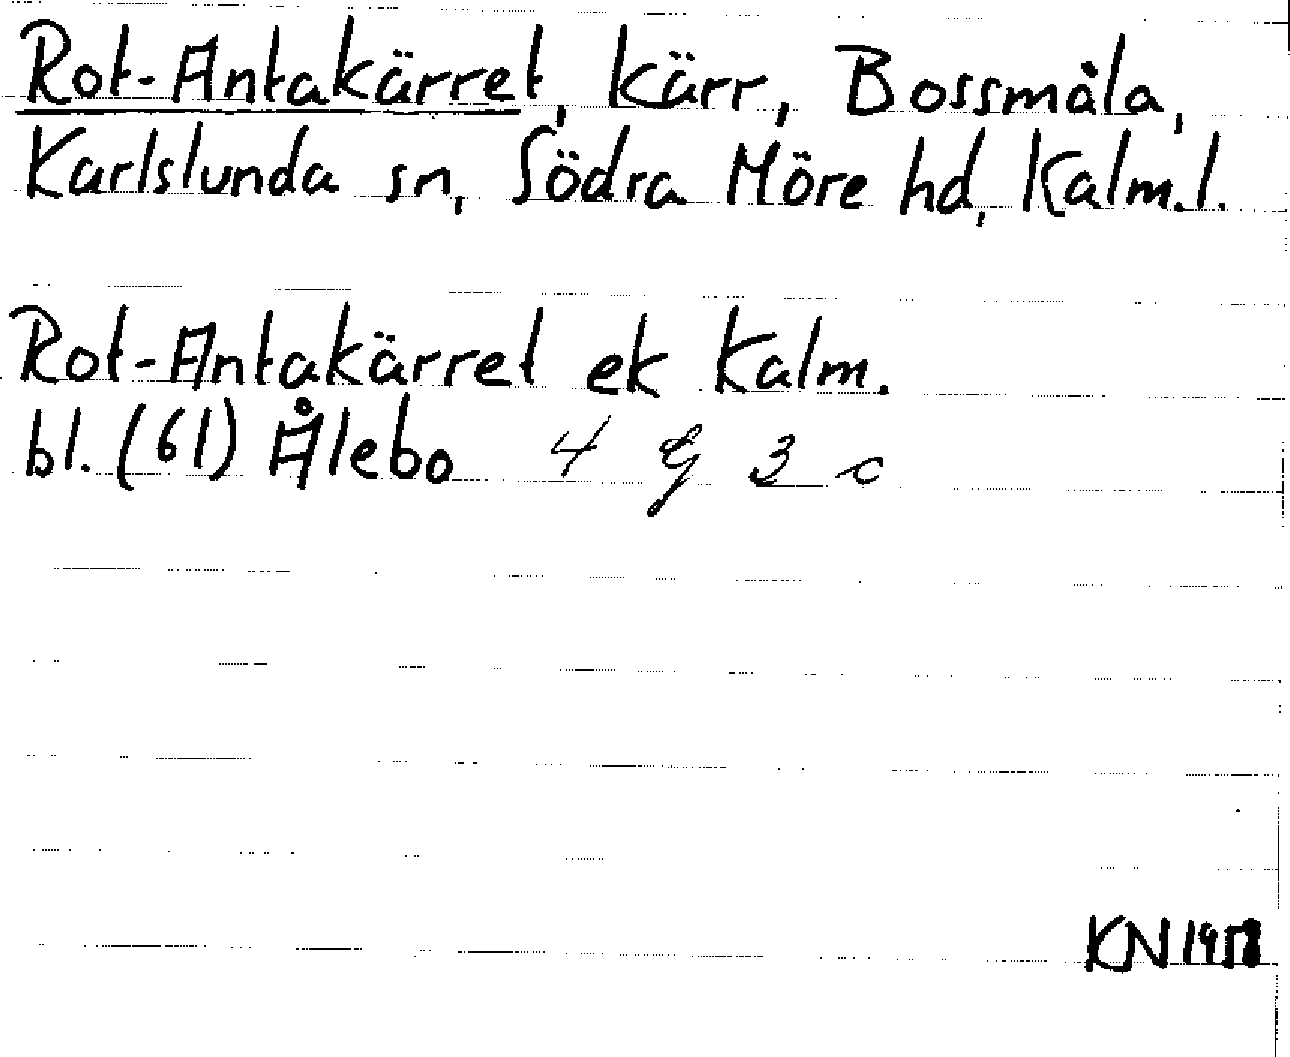 Rot-Antakärret, kärr, Bossmåla,
Karlslunda sn, Södra Möre hd, Kalm.l.
Rot-Antakärret ek Kalm.
bl. (61) Ålebo 4 G 3 c
KN